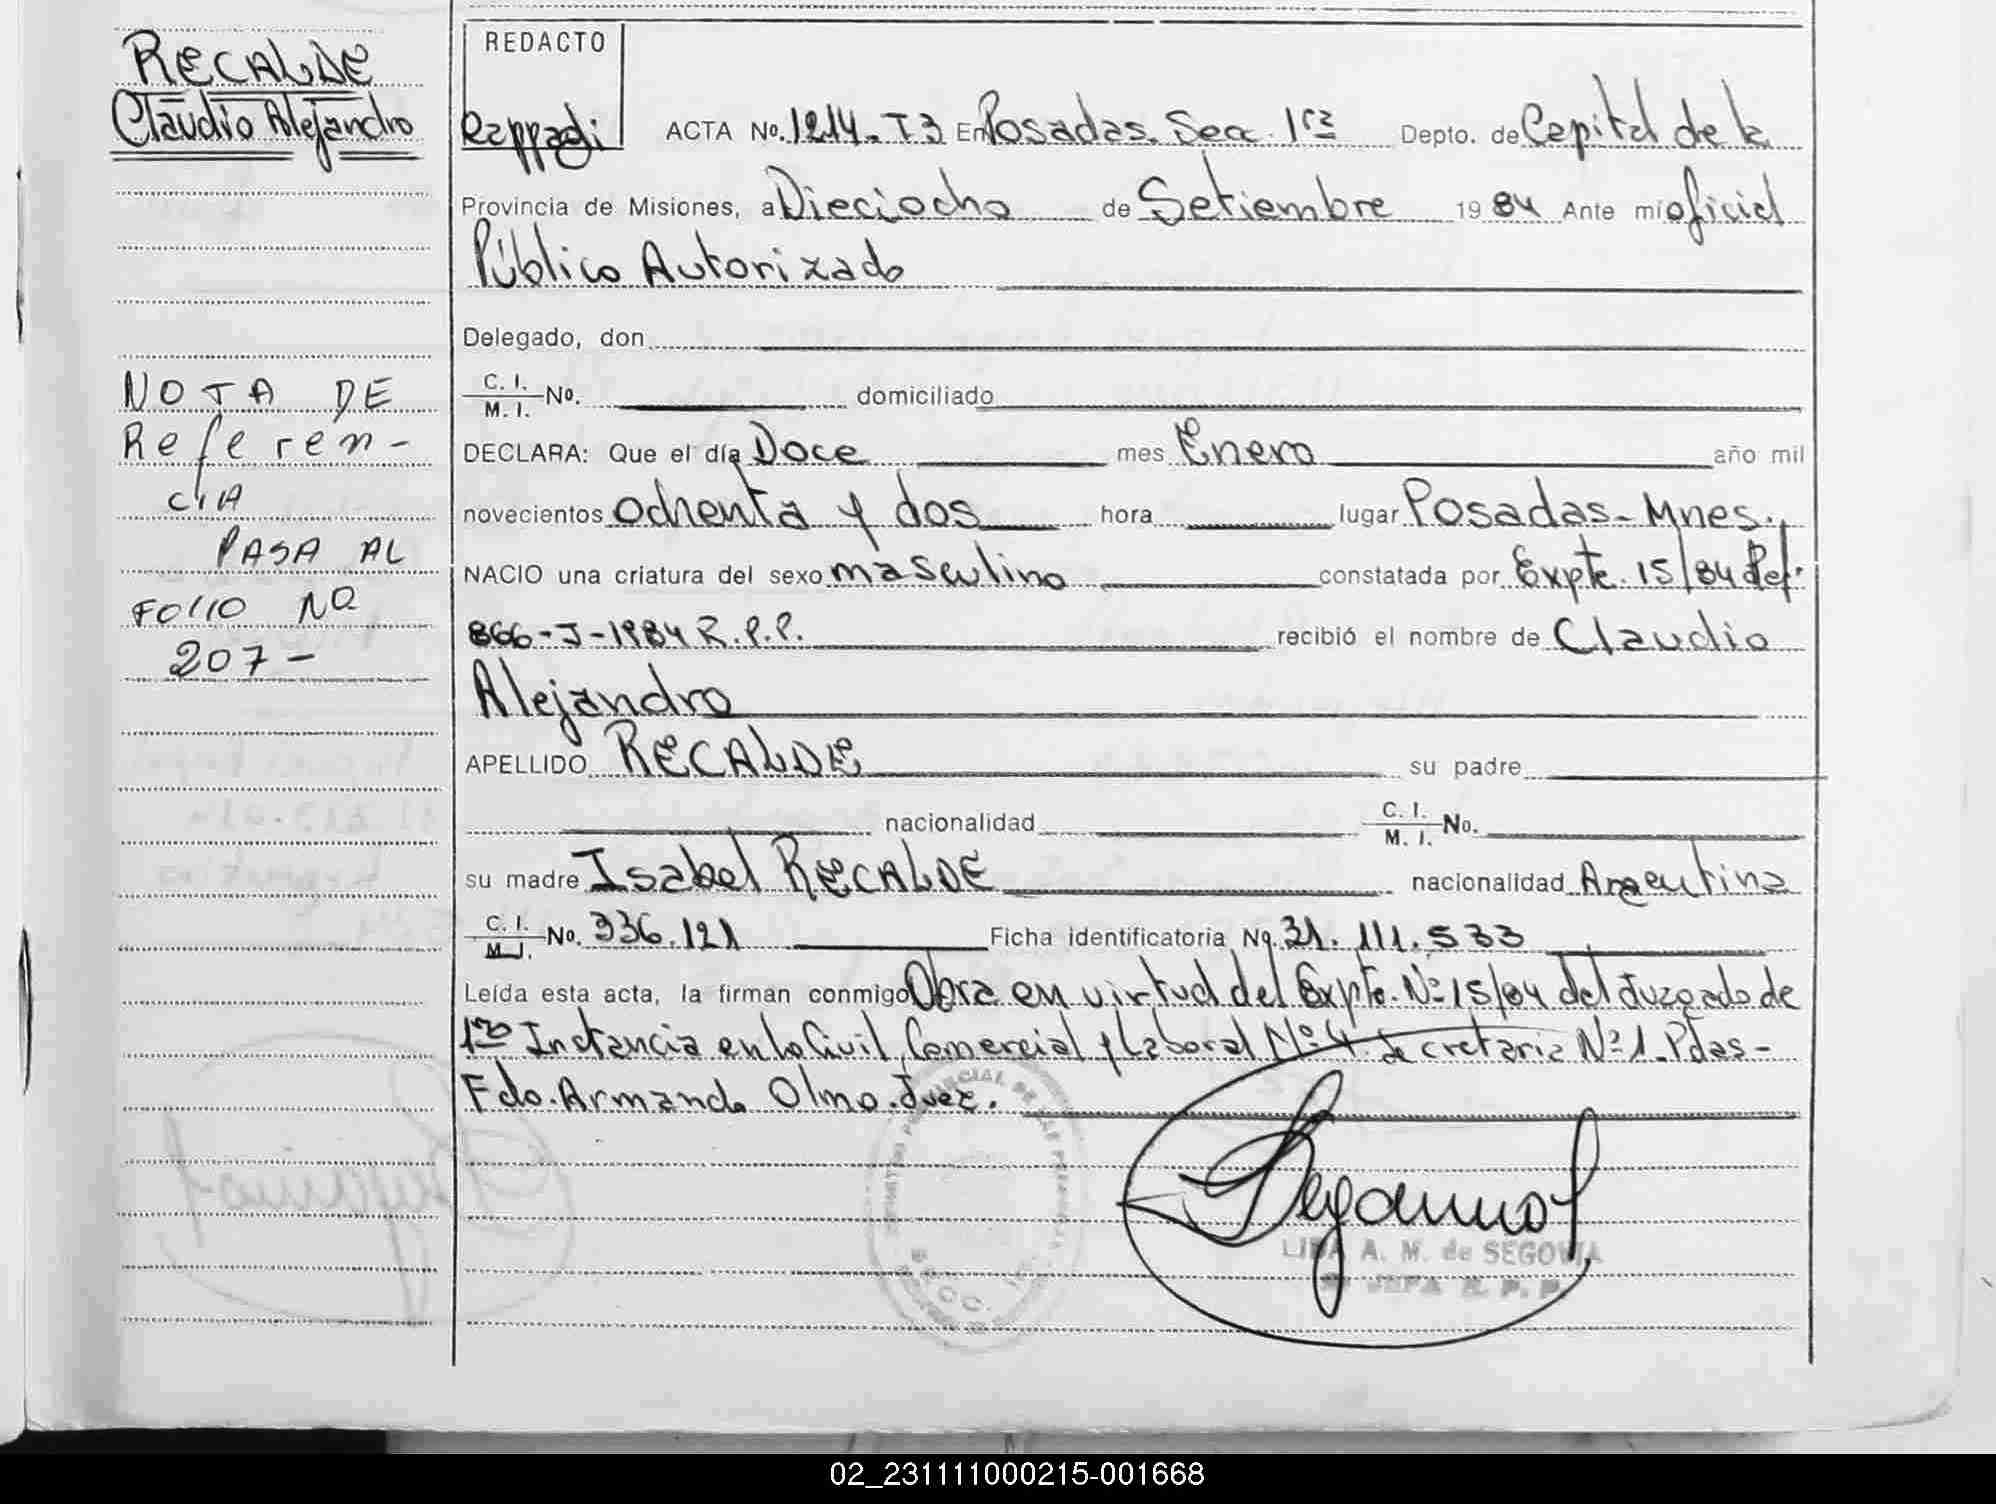 RECALDE
Claudio Alejandro
NOTA DE
Referen-
CIA
PASA AL
FOLIO Nº
207-
REDACTO
ACTA No. 1214-T3 En Posadas. Secc. 1ra Depto. de Capital de la
Provincia de Misiones, a Dieciocho de Setiembre 19 84 Ante mí oficial
Público Autorizado
Delegado, don
C. I. / M. I. No. domiciliado
DECLARA: Que el día Doce mes Enero año mil
novecientos ochenta y dos hora lugar Posadas-Mnes.
NACIO una criatura del sexo masculino constatada por Expte. 15/84 Ref.
866-J-1984 R.P.P. recibió el nombre de Claudio
Alejandro
APELLIDO RECALDE su padre
nacionalidad C. I. / M. I. No.
su madre Isabel RECALDE nacionalidad Argentina
C. I. / M. I. No. 336.121 Ficha identificatoria No. 31.111.533
Leída esta acta, la firman conmigo Obra en virtud del Expte. Nº 15/84 del Juzgado de
1ra Instancia en lo Civil, Comercial y Laboral Nº 4. Secretaria Nº 1. Pdas-
Fdo. Armando Olmo. Juez.
LIDA A. M. de SEGOVIA
JEFA R. P. P.
02_231111000215-001668